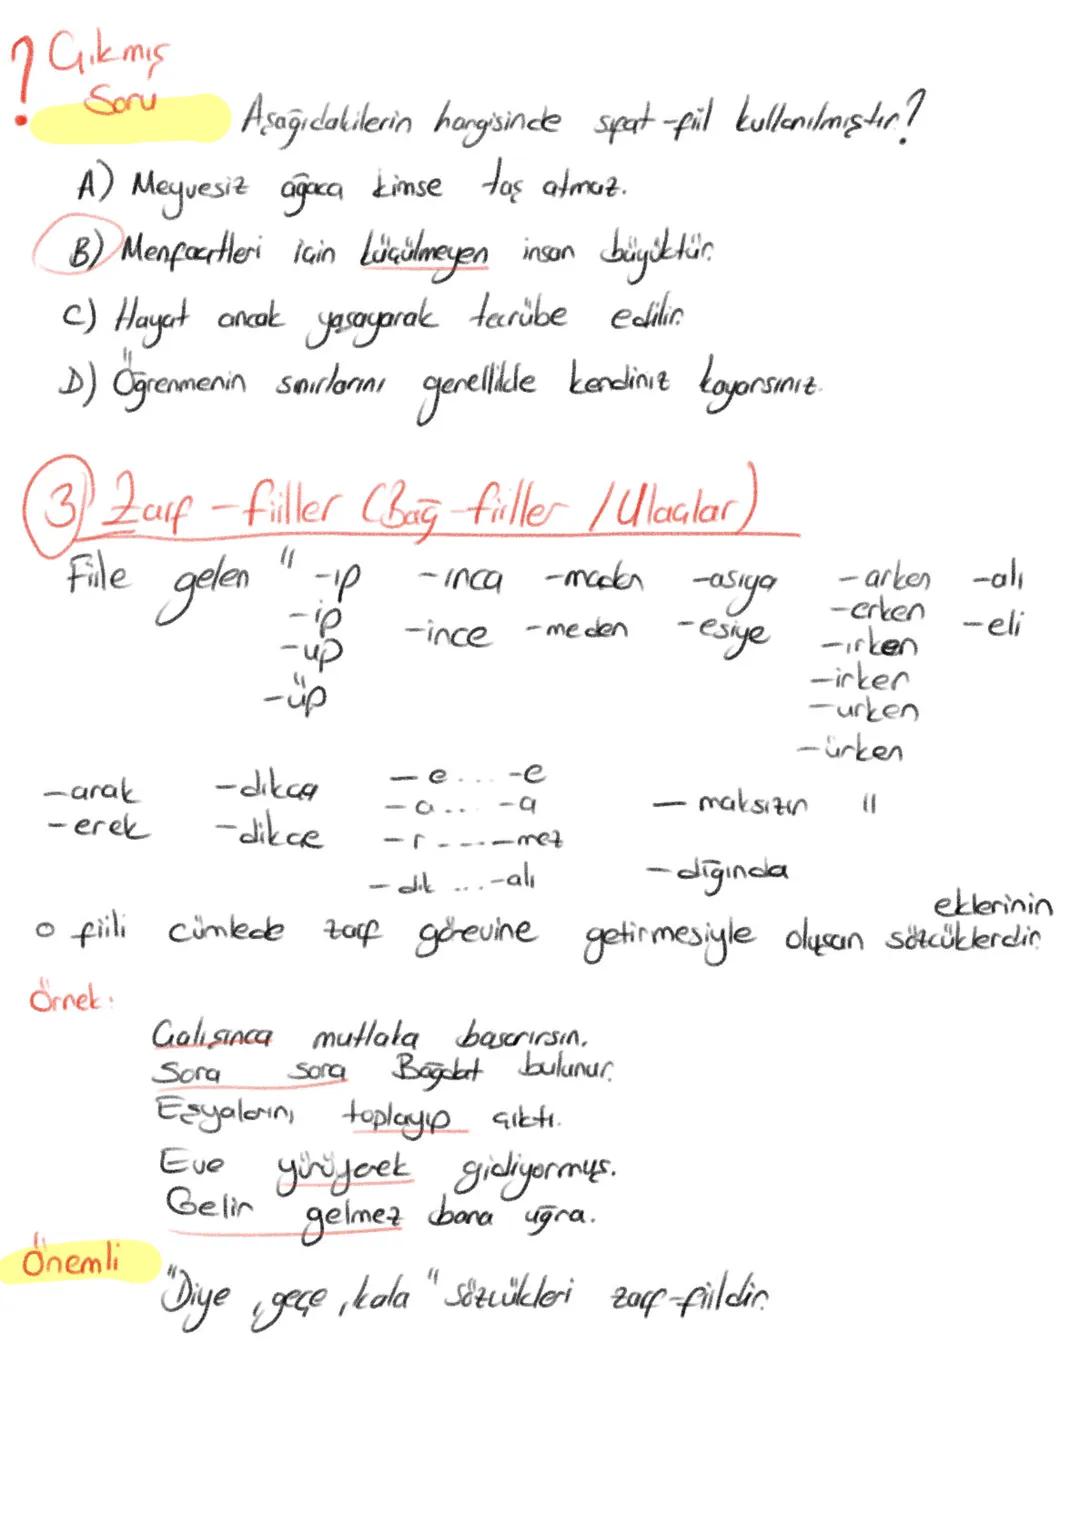 ? Çıkmış
Soru
Aşağıdakilerin hangisinde sıfat-fiil kullanılmıştır?
A) Meyvesiz ağaca kimse taş atmaz.
B) Menfaatleri için küçülmeyen insan büyüktür.
C) Hayat ancak yaşayarak tecrübe edilir.
D) Öğrenmenin sınırlarını genellikle kendiniz koyarsınız.
3) Zarf-fiiller (Bağ-fiiller / Ulaçlar)
Fiile gelen " -ıp -ınca -madan -asıya -arken -alı
-ip -ince -meden -esiye -erken -eli
-up -ırken
-üp -irken
-urken
-ürken
-arak -dıkça -e....-e -maksızın "
-erek -dikçe -a...-a
-r.....-mez
-dı ...-alı -dığında
eklerinin
o fiili cümlede zarf görevine getirmesiyle oluşan sözcüklerdir.
Örnek:
Çalışınca mutlaka başarırsın.
Sora sora Bağdat bulunur.
Eşyalarını toplayıp çıktı.
Eve yürüyerek gidiyormuş.
Gelir gelmez bana uğra.
Önemli
"Diye, geçe, kala" sözcükleri zarf-fiildir.